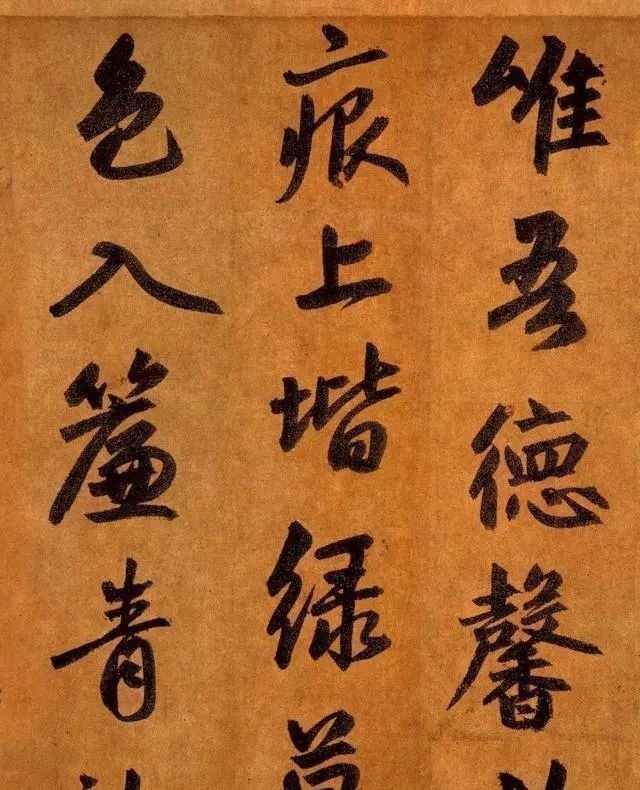 惟吾德馨
痕上堦綠草
色入簾青